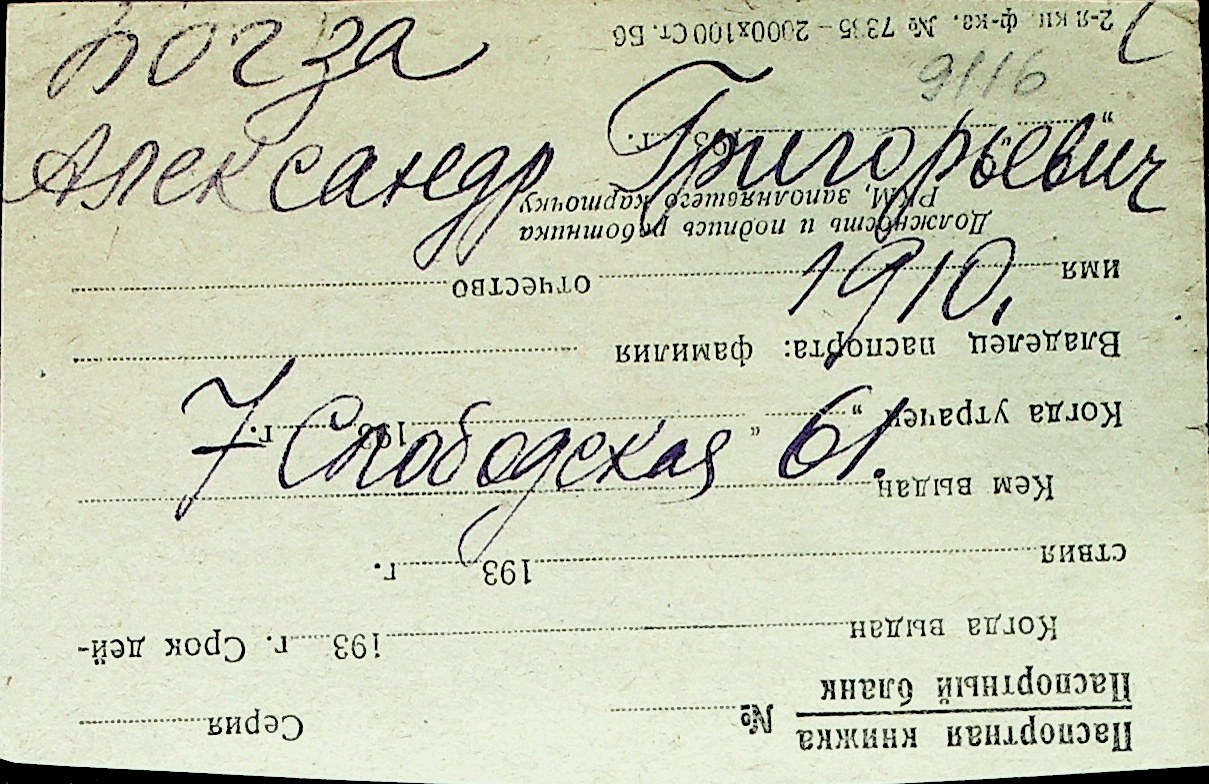 Богза
Александр Григорьевич
1910.
7 Слободская 61.
9116
Паспортная книжка
Паспортный бланк
№ Серия
Когда выдан 193 г. Срок дей-
ствия 193 г.
Кем выдан
Когда утрачен „ “ 193 г.
Владелец паспорта: фамилия
имя отчество
Должность и подпись работника
РКМ, заполнявшего карточку
„ “ 193 г.
2-я кн. ф-ка. № 7335 — 2000х100 Ст. Б6